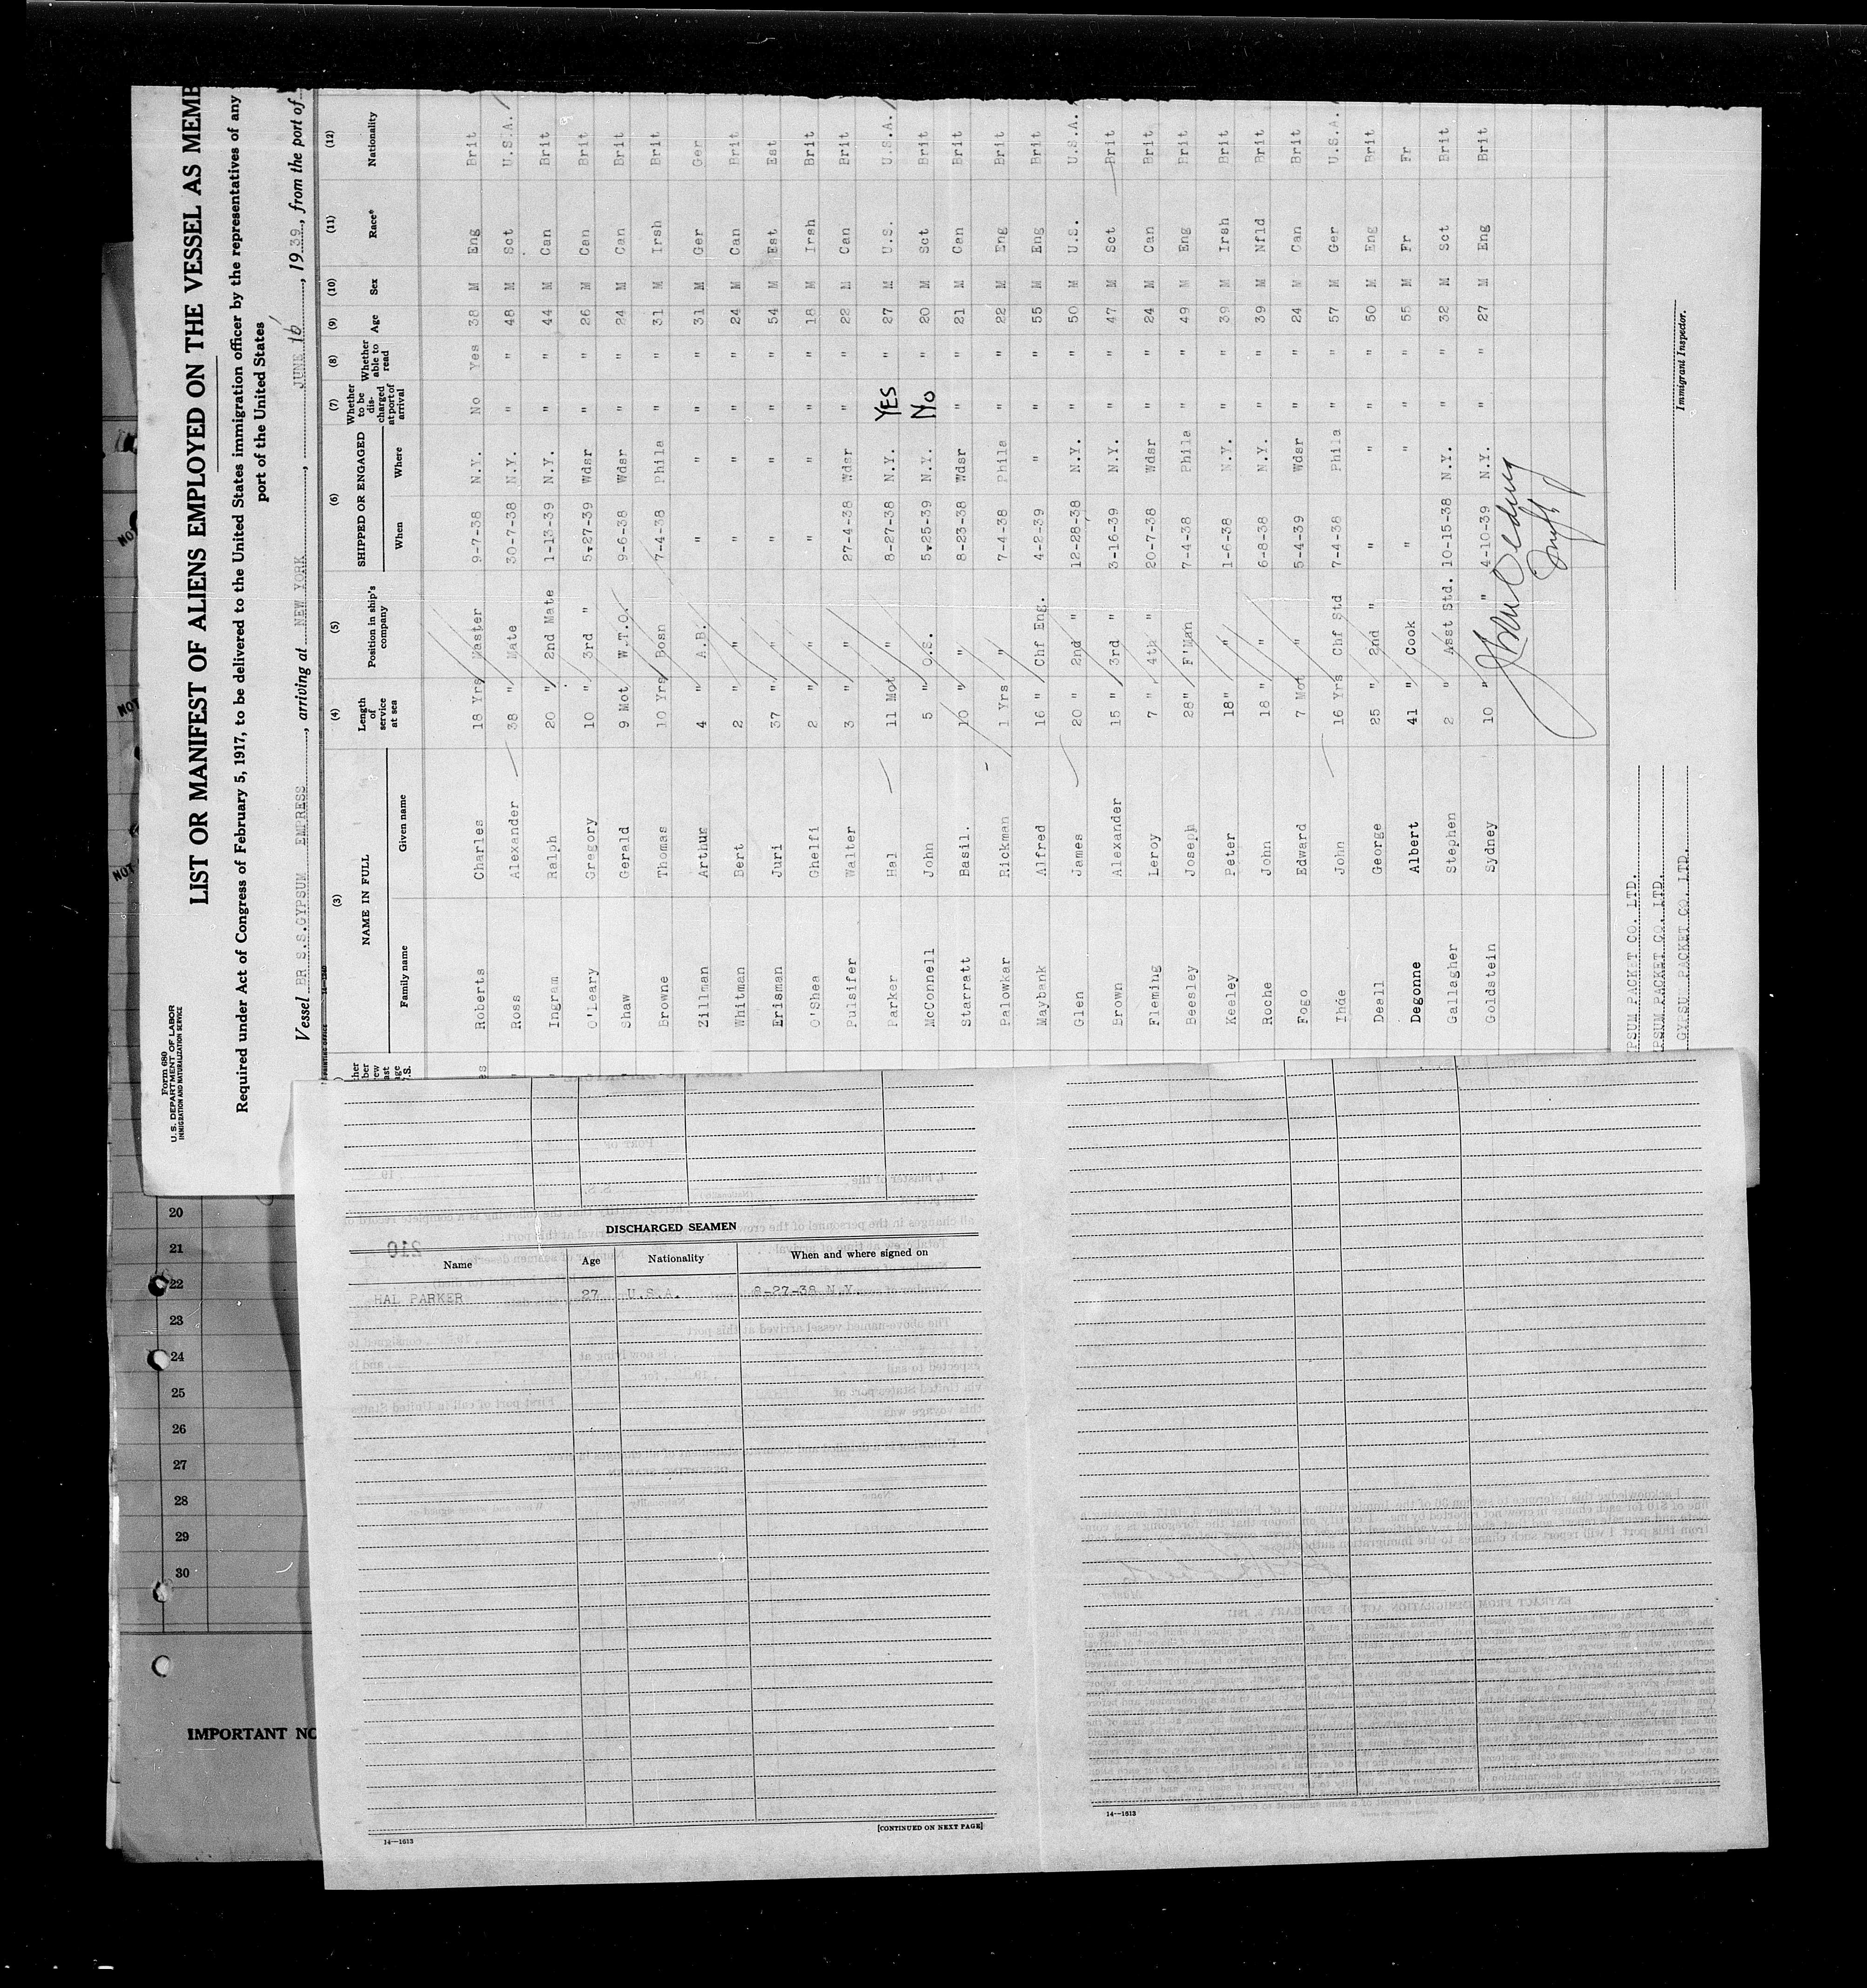 Form 680
U. S. DEPARTMENT OF LABOR
IMMIGRATION AND NATURALIZATION SERVICE
LIST OR MANIFEST OF ALIENS EMPLOYED ON THE VESSEL AS MEMB
Required under Act of Congress of February 5, 1917, to be delivered to the United States immigration officer by the representatives of any
port of the United States
Vessel BR S.S.GYPSUM EMPRESS, arriving at NEW YORK, JUNE 16, 1939, from the port of
(3) (4) (5) (6) (7) (8) (9) (10) (11) (12)
NAME IN FULL Length of service at sea Position in ship's company SHIPPED OR ENGAGED Whether to be discharged at port of arrival Whether able to read Age Sex Race* Nationality
Family name Given name When Where
Roberts Charles 18 Yrs Master 9-7-38 N.Y. No Yes 38 M Eng Brit
Ross Alexander 38 " Mate 30-7-38 N.Y. " " 48 M Sct U.S.A.
Ingram Ralph 20 " 2nd Mate 1-13-39 N.Y. " " 44 M Can Brit
O'Leary Gregory 10 " 3rd " 5-27-39 Wdsr " " 26 M Can Brit
Shaw Gerald 9 Mot W.T.O. 9-6-38 Wdsr " " 24 M Can Brit
Browne Thomas 10 Yrs Bosn 7-4-38 Phila " " 31 M Irsh Brit
Zillman Arthur 4 " A.B. " " " " 31 M Ger Ger
Whitman Bert 2 " " " " " " 24 M Can Brit
Erisman Juri 37 " " " " " " 54 M Est Est
O'Shea Ghelfi 2 " " " " " " 18 M Irsh Brit
Pulsifer Walter 3 " " 27-4-38 Wdsr " " 22 M Can Brit
Parker Hal 11 Mot " 8-27-38 N.Y. YES " 27 M U.S. U.S.A.
McConnell John 5 " O.S. 5-25-39 N.Y. No " 20 M Sct Brit
Starratt Basil. 10 " " 8-23-38 Wdsr " " 21 M Can Brit
Palowkar Rickman 1 Yrs " 7-4-38 Phila " " 22 M Eng Brit
Maybank Alfred 16 " Chf Eng. 4-2-39 " " " 55 M Eng Brit
Glen James 20 " 2nd " 12-28-38 N.Y. " " 50 M U.S. U.S.A.
Brown Alexander 15 " 3rd " 3-16-39 N.Y. " " 47 M Sct Brit
Fleming Leroy 7 " 4th " 20-7-38 Wdsr " " 24 M Can Brit
Beesley Joseph 28" F'Man 7-4-38 Phila " " 49 M Eng Brit
Keeley Peter 18" " 1-6-38 N.Y. " " 39 M Irsh Brit
Roche John 18 " " 6-8-38 N.Y. " " 39 M Nfld Brit
Fogo Edward 7 Mot " 5-4-39 Wdsr " " 24 M Can Brit
Ihde John 16 Yrs Chf Std 7-4-38 Phila " " 57 M Ger U.S.A.
Deall George 25 " 2nd " " " " " 50 M Eng Brit
Degonne Albert 41 " Cook " " " " 55 M Fr Fr
Gallagher Stephen 2 " Asst Std. 10-15-38 N.Y. " " 32 M Sct Brit
Goldstein Sydney 10 " " 4-10-39 N.Y. " " 27 M Eng Brit
Immigrant Inspector.
PSUM PACKET CO. LTD.
PSUM PACKET CO. LTD.
GYPSU PACKET CO. LTD.
20
21
22
23
24
25
26
27
28
29
30
IMPORTANT NO
DISCHARGED SEAMEN
Name Age Nationality When and where signed on
HAL PARKER 27 U.S.A. 8-27-38 N.Y.
14—1613
[CONTINUED ON NEXT PAGE]
14—1613